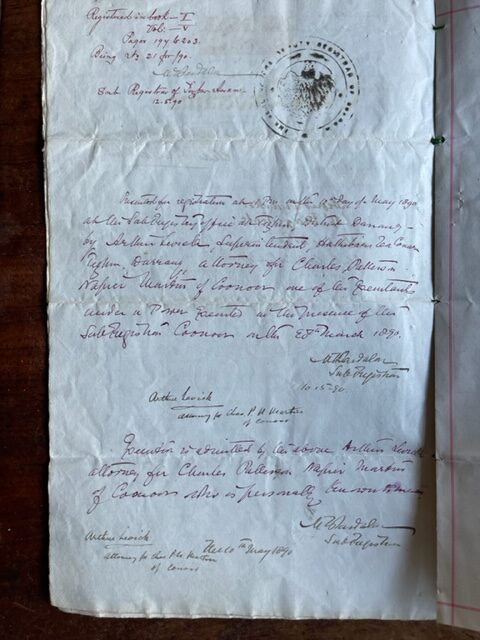 Registered in book - I
Vol: - V
Pages 197 to 203.
Being No 21 for /90.
Sub Registrar of Tezpur Assam
12.5.90
Presented for registration at on the day of May 1890
at the Sub Registry office at Tezpur, District Darrang -
by Arthur Levick, Superintendent Tea
Darrang attorney for Charles Patterson
Napier Martin of Coonoor one of the Executants
under a Power Executed in the presence of the
Sub Registrar Coonoor on the 28th March 1890.
Sub Registrar
10.5.90.
Arthur Levick
attorney for Chas P N Martin
of Coonoor
Execution is admitted by the above Arthur Levick
attorney for Charles Patterson Napier Martin
of Coonoor who is personally known to me
Sub Registrar
Arthur Levick
attorney for Chas P N Martin
of Coonoor
The 10th May 1890